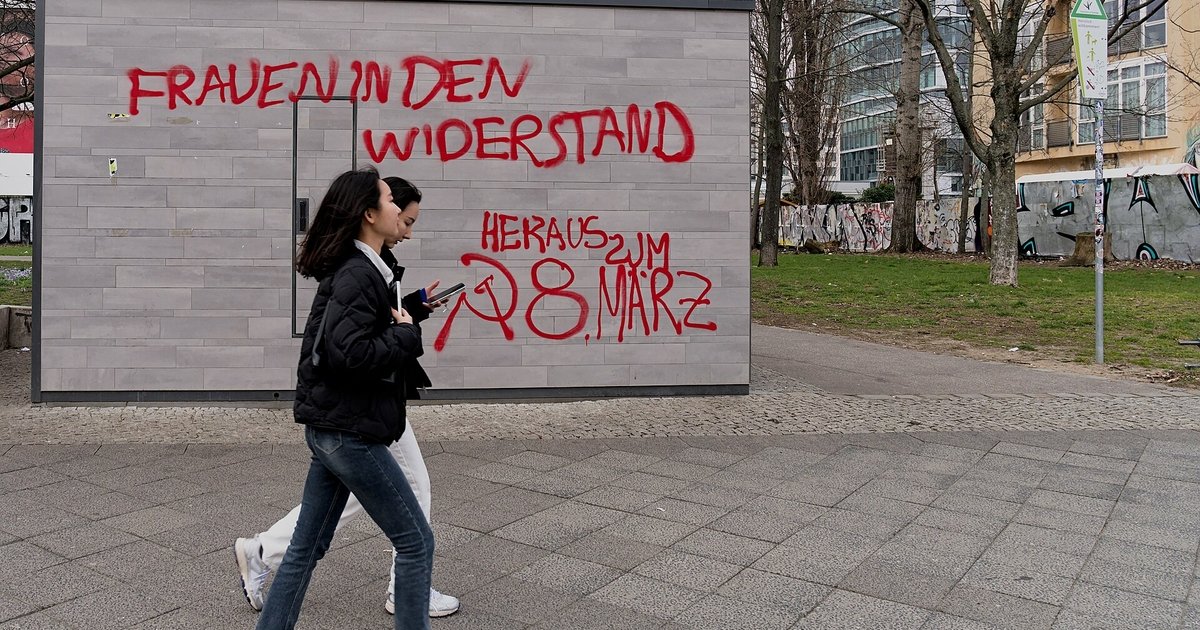 FRAUEN IN DEN
WIDERSTAND
HERAUS ZUM
8. MÄRZ